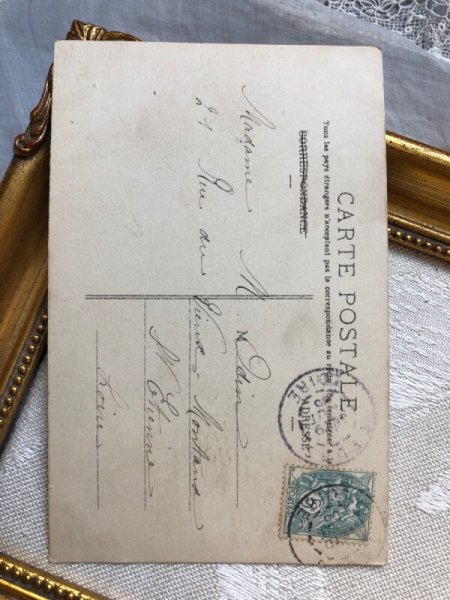 CARTE POSTALE
Tous les pays étrangers n'acceptent pas la correspondance au recto. Se renseigner à la
CORRESPONDANCE
ADRESSE
Madame M. Odin
21 Rue du Vieux-Montaud
St Etienne
Loire